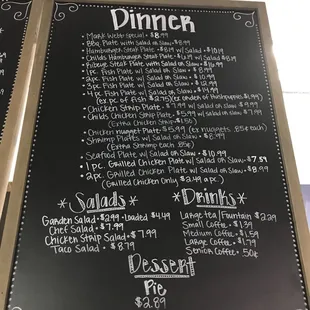 Dinner
• Mark Watt Special • $8.99
• BBQ Plate with Salad or Slaw • $8.99
• Hamburger Steak Plate • $8.19 w/ Salad • $10.19
• Childs Hamburger Steak Plate • $6.19 w/ Salad $8.19
• Ribeye Steak Plate with Salad or Slaw • $16.99
• 1pc. Fish Plate w/ Salad or Slaw • $10.99
• 2pc Fish Plate w/ Salad or Slaw • $12.99
• 4pc Fish Plate w/ Salad or Slaw • $14.99
(ex. pc of Fish $2.75) (ex order of Hushpuppies $1.99)
• Chicken Strip Plate • $7.99 w/ Salad or Slaw • $9.99
• Childs Chicken Strip Plate • $5.99 w/ Salad or Slaw • $7.99
(Extra Chicken Strip • $1.50)
• Chicken Nugget Plate • $5.99 (ex nuggets • 85¢ each)
• Shrimp Platter w/ Salad or Slaw •
(Extra Shrimp each .85¢)
• Seafood Plate w/ Salad or Slaw •
• 1 pc. Grilled Chicken Plate w/ Salad or Slaw • $7.59
• 2pc. Grilled Chicken Plate w/ Salad or Slaw • $8.99
(Grilled Chicken Only $2.49 a pc.)
*Salads*
Garden Salad • $2.99 • Loaded $4.49
Chef Salad • $7.99
Chicken Strip Salad • $7.99
Taco Salad • $8.79
*Drinks*
Large Tea/Fountain $2.29
Small Coffee • $1.39
Medium Coffee • $1.59
Large Coffee • $1.79
Senior Coffee • 50¢
Dessert
Pie
$2.89